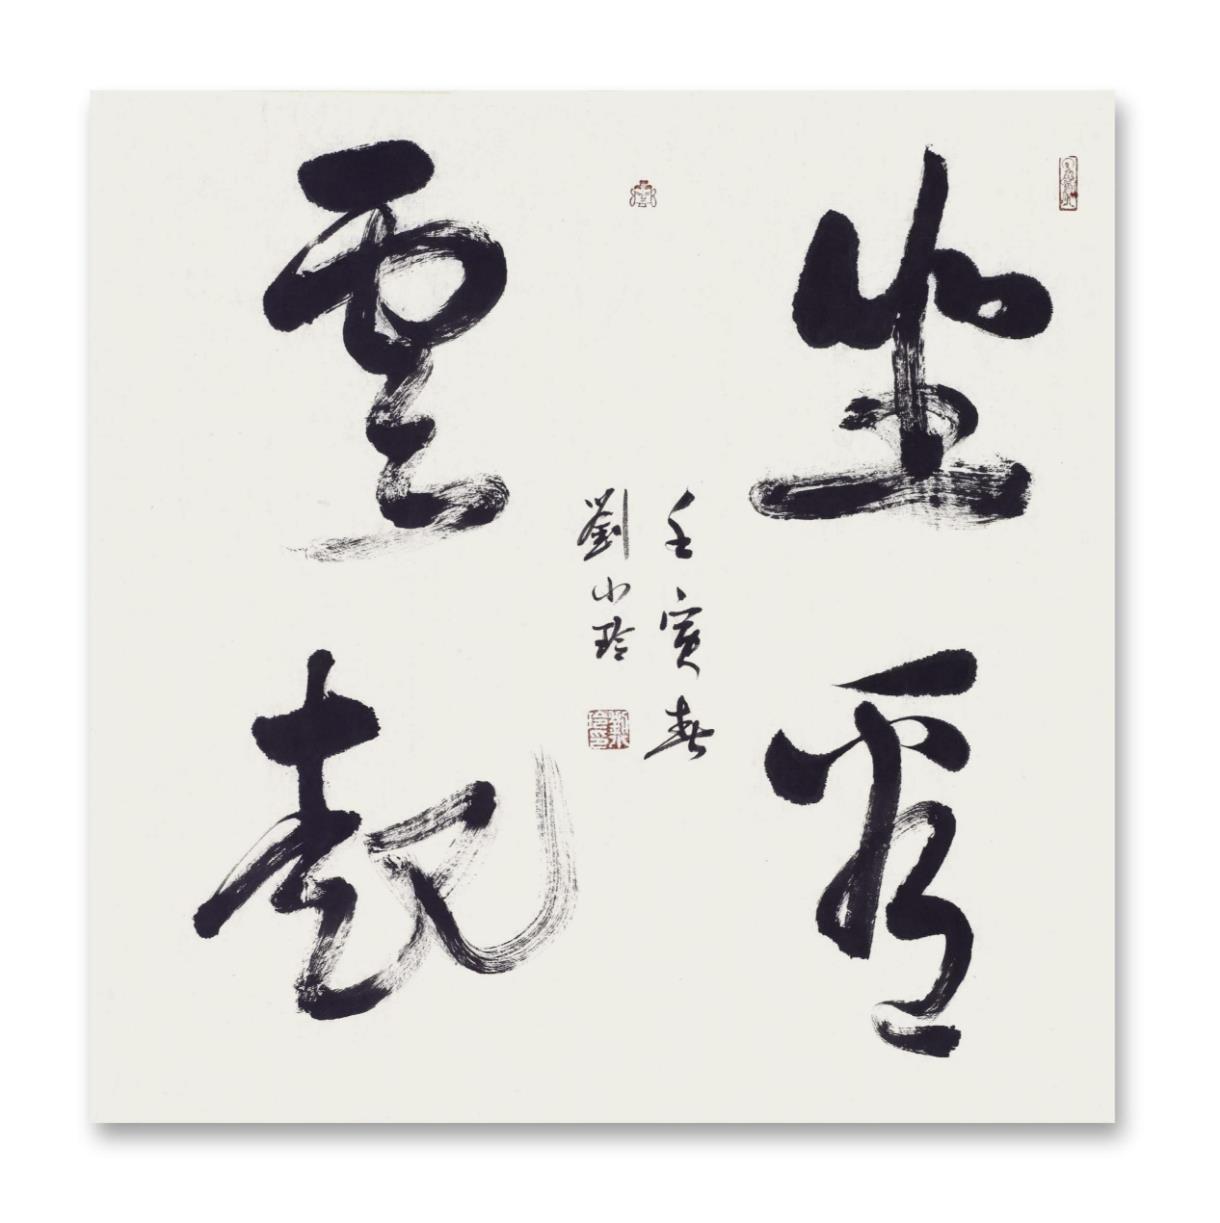 坐看
雲起
壬寅春
劉小玲